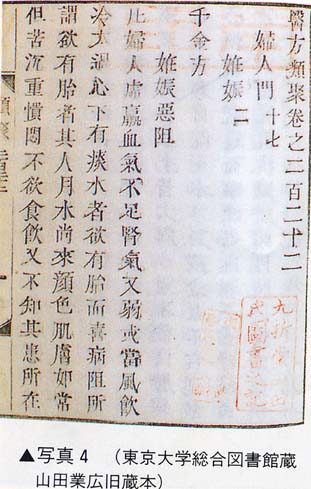 醫方類聚卷之二百二十二
婦人門 十七
妊娠二
千金方
妊娠惡阻
凡婦人虛羸血氣不足腎氣又弱或當風飲
冷太過心下有痰水者欲有胎而喜病阻所
謂欲有胎者其人月水尚來顏色肌膚如常
但苦沉重憒悶不欲食飲又不知其患所在
▲写真4 (東京大学総合図書館蔵
山田業広旧蔵本)